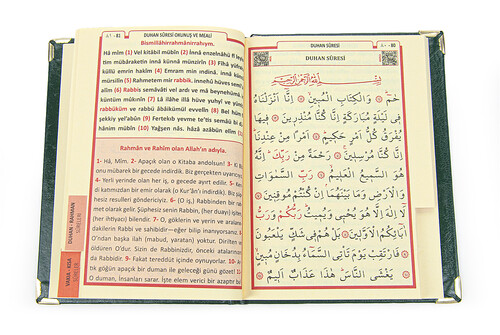 ٨١ - 81
DUHAN SÛRESİ OKUNUŞ VE MEALİ
Bismillâhirrahmânirrahîym.
Hâ mîm (1) Vel kitâbil mübîn (2) İnnâ enzelnâhü fî leyle
tim mübâraketin innâ künnâ münzirîn (3) Fîhâ yüfra
küllü emrin hakîm (4) Emram min ındinâ. innâ künn
mürsilîn (5) Rahmetem mir rabbik. innehû hüves semî
alîm (6) Rabbis semâvâti vel ardı ve mâ beynehümâ.
küntüm mûkınîn (7) Lâ ilâhe illâ hüve yuhyî ve yümît
rabbüküm ve rabbü âbâikümül evvelîn (8) Bel hüm
şekkiy yel'abûn (9) Fertekıb yevme te'tis semâü bi d
hânim mübîn (10) Yağşen nâs. hâzâ azâbün elîm
Rahmân ve Rahîm olan Allah'ın adıyla.
1- Hâ, Mîm. 2- Apaçık olan o Kitaba andolsun! 3- Ki
onu mübarek bir gecede indirdik. Biz gerçekten uyarıcıyız.
4- Yerli yerinde olan her iş, o gecede ayırt edilir. 5-
di katımızdan bir emir olarak (o Kur'ân'ı indirdik). Biz şüp
hesiz resulleri göndericiyiz. 6- (O iş,) Rabbinden bir rah
met olarak gelir. Şüphesiz senin Rabbin, (her duayı) işiten
(her ihtiyacı) bilendir. 7- O, göklerin ve yerin ve araların
dakilerin Rabbi ve sahibidir—eğer bilip inanıyorsanız.
O'ndan başka ilah (mabud, yaratan) yoktur. Dirilten ve
öldüren O'dur. Sizin de Rabbinizdir, önceki atalarınızın
da Rabbidir. 9- Fakat tereddüt içinde oynuyorlar. 10-
tık göğün apaçık bir duman ile geleceği günü gözet!
O duman, insanları sarar. İşte elem verici bir azaptır
DUHAN - RAHMAN
SÛRELERİ
VAKIA - KIDA
DUHAN SÛRESİ
٨٠ - 80
DUHAN SÛRESİ
بِسْمِ اللّٰهِ الرَّحْمٰنِ الرَّحِيمِ
حٰمٓ ۝ وَالْكِتَابِ الْمُبِينِ ۝ اِنَّٓا اَنْزَلْنَاهُ
فِي لَيْلَةٍ مُبَارَكَةٍ اِنَّا كُنَّا مُنْذِرِينَ ۝ فِيهَا
يُفْرَقُ كُلُّ اَمْرٍ حَكِيمٍ ۝ اَمْرًا مِنْ عِنْدِنَا
اِنَّا كُنَّا مُرْسِلِينَ ۝ رَحْمَةً مِنْ رَبِّكَ اِنَّهُ
هُوَ السَّمِيعُ الْعَلِيمُ ۝ رَبِّ السَّمٰوَاتِ
وَالْاَرْضِ وَمَا بَيْنَهُمَا اِنْ كُنْتُمْ مُوقِنِينَ ۝
لَٓا اِلٰهَ اِلَّا هُوَ يُحْيِي وَيُمِيتُ رَبُّكُمْ وَرَبُّ
اٰبَٓائِكُمُ الْاَوَّلِينَ ۝ بَلْ هُمْ فِي شَكٍّ يَلْعَبُونَ
۝ فَارْتَقِبْ يَوْمَ تَأْتِي السَّمَٓاءُ بِدُخَانٍ مُبِينٍ
۝ يَغْشَى النَّاسَ هٰذَا عَذَابٌ اَلِيمٌ ۝